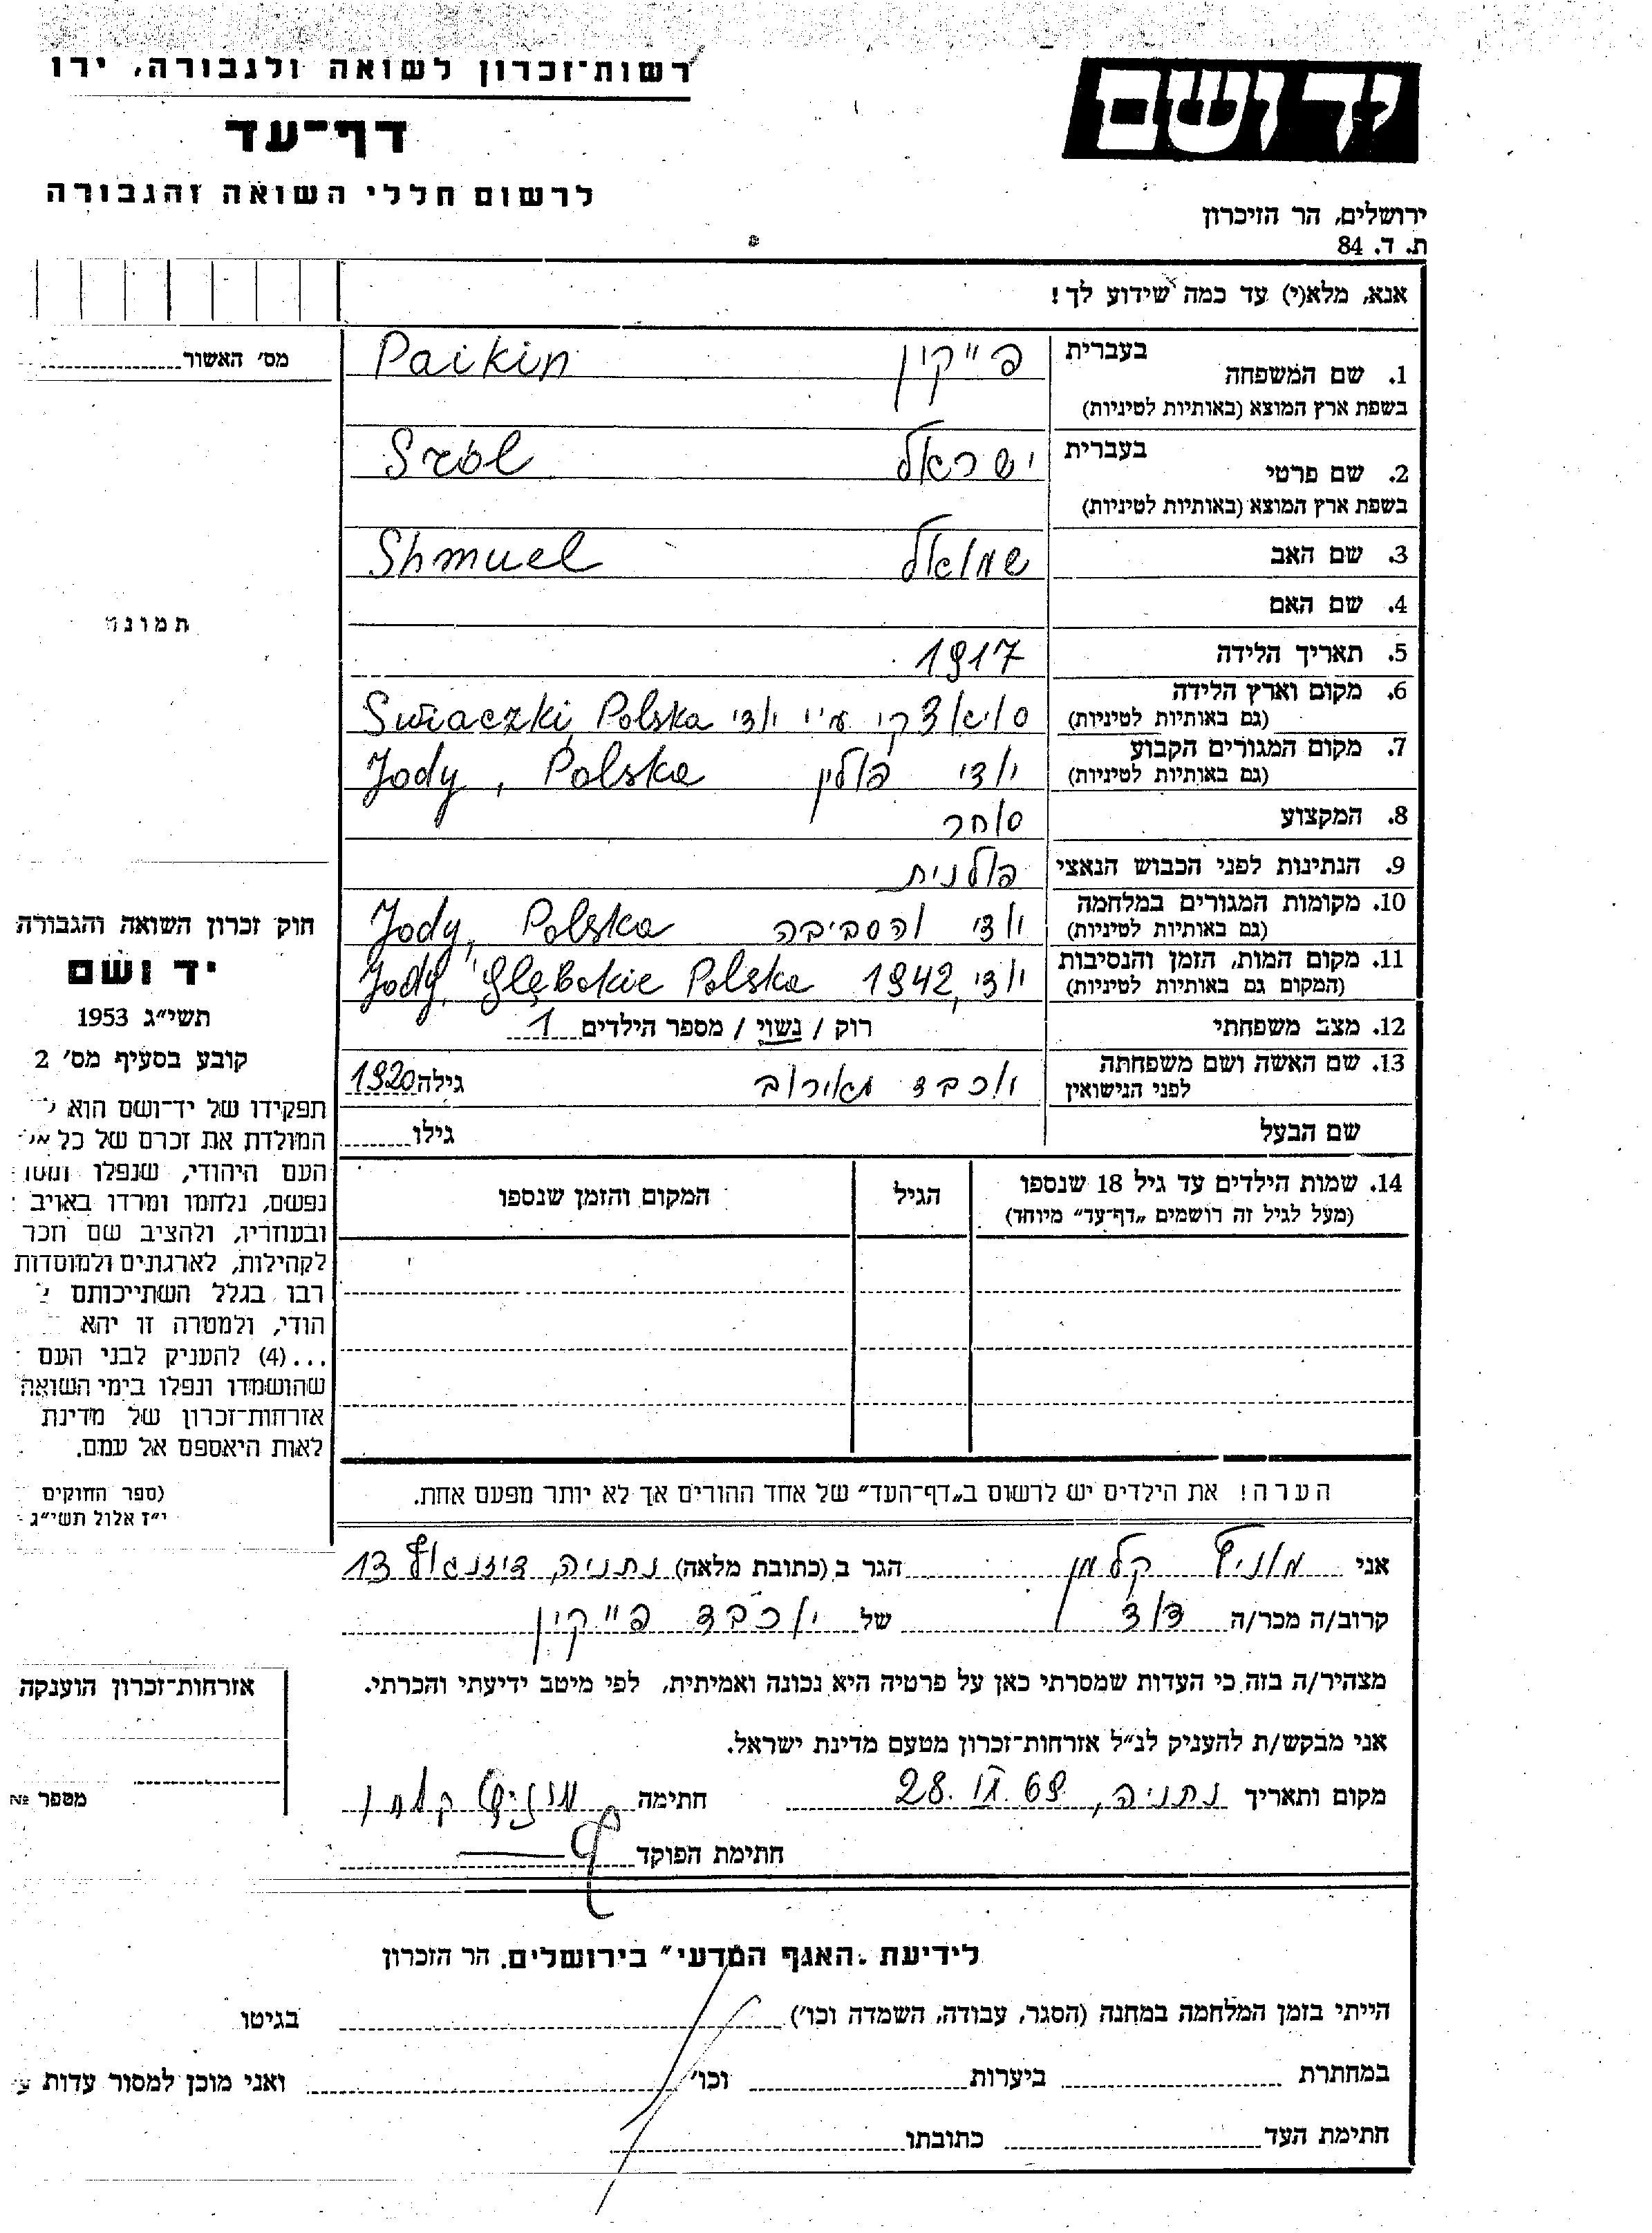 רשות־זכרון לשואה ולגבורה, ירו
דף־עד
לרשום חללי השואה והגבורה
יד ושם
ירושלים, הר הזיכרון
ת. ד. 84
אנא, מלא(י) עד כמה שידוע לך!
מס׳ האשור
בעברית
1. שם המשפחה פייקין Paikin
בשפת ארץ המוצא (באותיות לטיניות)
בעברית
2. שם פרטי ישראל Sról
בשפת ארץ המוצא (באותיות לטיניות)
3. שם האב שמואל Shmuel
4. שם האם
תמונה
5. תאריך הלידה 1917
6. מקום וארץ הלידה
(גם באותיות לטיניות) ע״י יודי Polska
7. מקום המגורים הקבוע
(גם באותיות לטיניות) יודי פולין Jody, Polska
8. המקצוע סוחר
9. הנתינות לפני הכבוש הנאצי פולנית
10. מקומות המגורים במלחמה
(גם באותיות לטיניות) יודי והסביבה Jody, Polska
11. מקום המות, הזמן והנסיבות
(המקום גם באותיות לטיניות) יודי, 1942 Jody, Głębokie Polska
12. מצב משפחתי רוק / נשוי / מספר הילדים 1
13. שם האשה ושם משפחתה
לפני הנישואין יוכבד גילה 1920
שם הבעל גילו
14. שמות הילדים עד גיל 18 שנספו הגיל המקום והזמן שנספו
(מעל לגיל זה רושמים „דף־עד״ מיוחד)
הערה! את הילדים יש לרשום ב„דף־העד״ של אחד ההורים אך לא יותר מפעם אחת.
חוק זכרון השואה והגבורה
יד ושם
תשי״ג 1953
קובע בסעיף מס׳ 2
תפקידו של יד־ושם הוא
המולדת את זכרם של כל
העם היהודי, שנפלו ומסרו
נפשם, נלחמו ומרדו באויב
ובעוזריו, ולהציב שם וזכר
לקהילות, לארגונים ולמוסדות
רבו בגלל השתייכותם
הודי, ולמטרה זו יהא
...(4) להעניק לבני העם
שהושמדו ונפלו בימי השואה
אזרחות־זכרון של מדינת
לאות היאספם אל עמם.
(ספר החוקים
י״ז אלול תשי״ג
אני קלמן הגר ב (כתובת מלאה) נתניה, דיזנגוף 13
קרוב/ה מכר/ה דוד של יוכבד פייקין
מצהיר/ה בזה כי העדות שמסרתי כאן על פרטיה היא נכונה ואמיתית, לפי מיטב ידיעתי והכרתי.
אני מבקש/ת להעניק לנ״ל אזרחות־זכרון מטעם מדינת ישראל.
מקום ותאריך נתניה, חתימה קלמן
חתימת הפוקד
אזרחות־זכרון הוענקה
מספר №
לידיעת „האגף המדעי״ בירושלים, הר הזכרון
הייתי בזמן המלחמה במחנה (הסגר, עבודה, השמדה וכו׳) בגיטו
במחתרת ביערות וכו׳ ואני מוכן למסור עדות
חתימת העד כתובתו